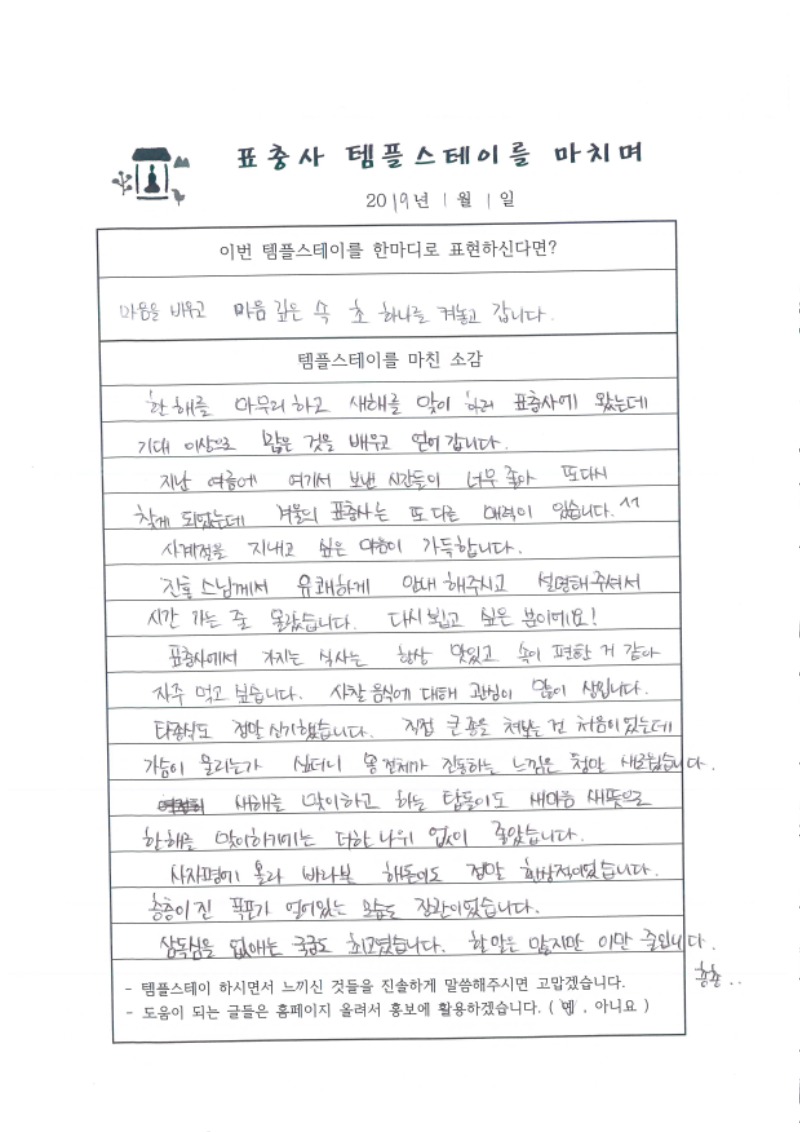 표충사 템플스테이를 마치며
2019년 1월 1일
이번 템플스테이를 한마디로 표현하신다면?
마음을 비우고 마음 깊은 속 초 하나를 켜놓고 갑니다.
템플스테이를 마친 소감
한 해를 마무리 하고 새해를 맞이 하러 표충사에 왔는데
기대 이상으로 많은 것을 배우고 얻어 갑니다.
지난 여름에 여기서 보낸 시간들이 너무 좋아 또다시
찾게 되었는데 겨울의 표충사는 또 다른 매력이 있습니다. ^^
사계절을 지내고 싶은 마음이 가득합니다.
스님께서 유쾌하게 안내 해주시고 설명해 주셔서
시간 가는 줄 몰랐습니다. 다시 뵙고 싶은 분이에요!
표충사에서 가지는 식사는 항상 맛있고 속이 편한 거 같아
자주 먹고 싶습니다. 사찰 음식에 대해 관심이 많이 생깁니다.
타종식도 정말 신기했습니다. 직접 큰 종을 쳐보는 건 처음이었는데
가슴이 울리는가 싶더니 몸 전체가 진동하는 느낌은 정말 새로웠습니다.
새해를 맞이하고 하는 탑돌이도 새마음 새뜻으로
한해를 맞이하기에는 더한 나위 없이 좋았습니다.
사자평에 올라 바라본 해돋이도 정말 환상적이었습니다.
층층이 진 폭포가 얼어있는 모습도 장관이었습니다.
삼독심을 없애는 국궁도 최고였습니다. 할 말은 많지만 이만 줄입니다.
총총..
- 템플스테이 하시면서 느끼신 것들을 진솔하게 말씀해주시면 고맙겠습니다.
- 도움이 되는 글들은 홈페이지 올려서 홍보에 활용하겠습니다. ( 예 , 아니요 )